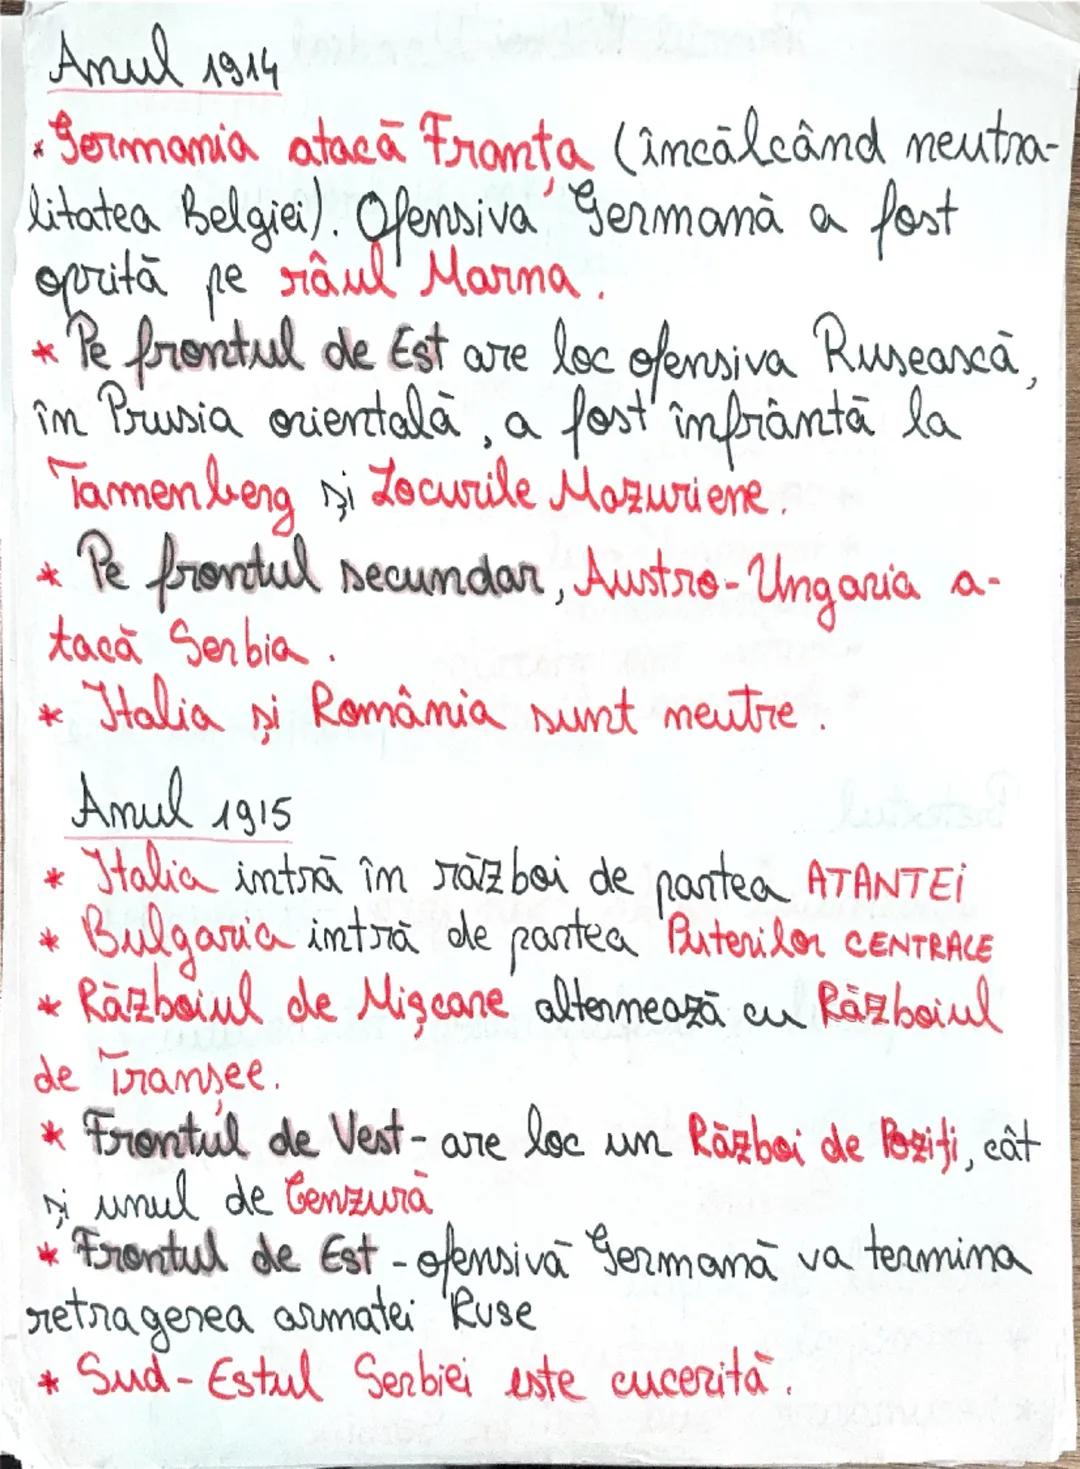 Anul 1914
* Germania atacă Franța (încălcând neutra-
litatea Belgiei). Ofensiva Germană a fost
oprită pe râul Marna.
* Pe frontul de Est are loc ofensiva Rusească,
în Prusia orientală, a fost înfrântă la
Tamenberg și Locurile Mazuriene.
* Pe frontul secundar, Austro-Ungaria a-
tacă Serbia.
* Italia și România sunt neutre.
Anul 1915
* Italia intră în război de partea ATANTEi
* Bulgaria intră de partea Puterilor CENTRALE
* Războiul de Mișcare alternează cu Războiul
de Tranșee.
* Frontul de Vest - are loc un Război de Poziți, cât
și unul de Cenzură
* Frontul de Est - ofensivă Germană va termina
retragerea armatei Ruse
* Sud-Estul Serbiei este cucerită.